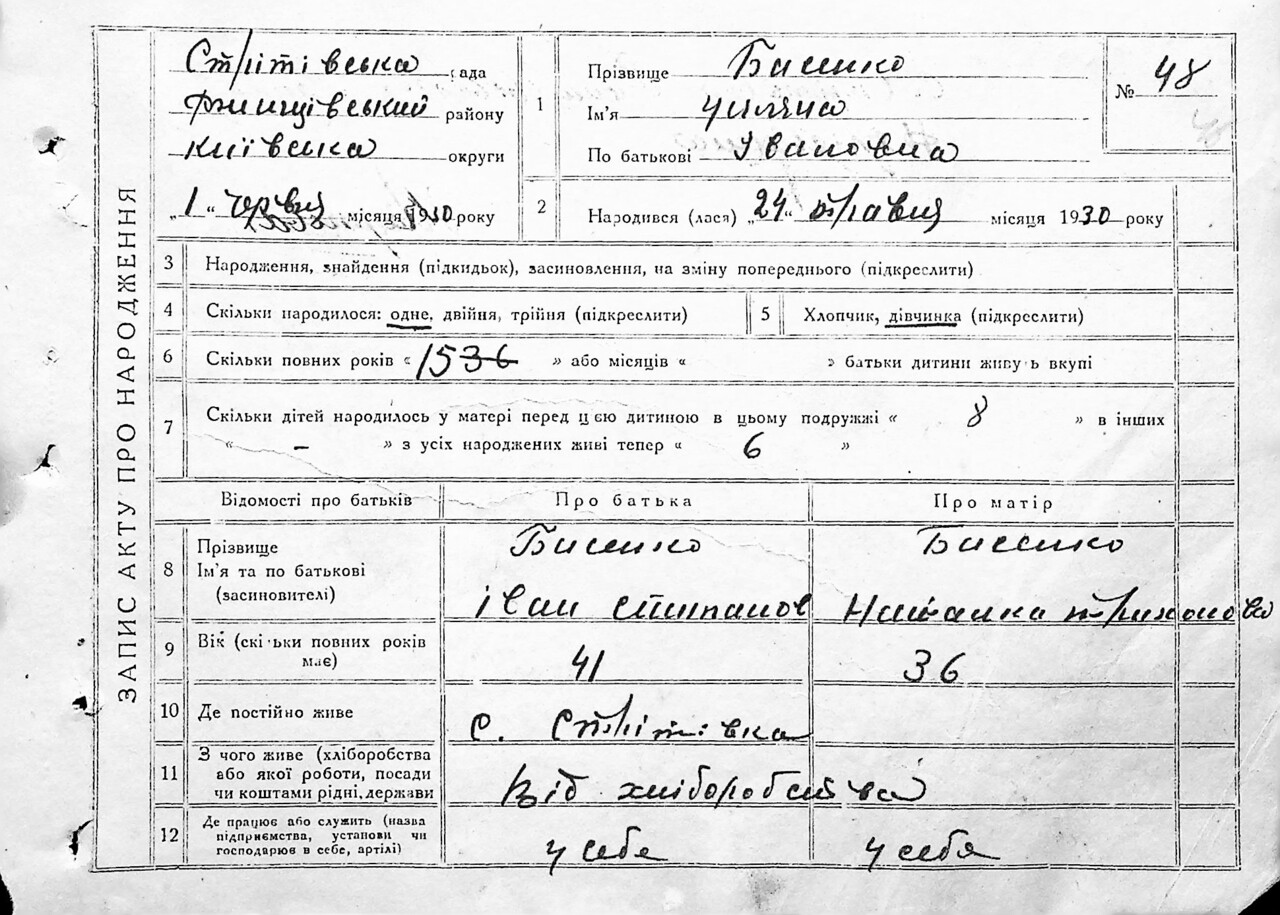 ЗАПИС АКТУ ПРО НАРОДЖЕННЯ
Стрітівська рада
Ржищівський району
Київська округи
„1“ червня місяця 1930 року
1
Прізвище Бисенко
Ім'я Уляна
По батькові Івановна
№ 48
2
Народився (лася) „24“ травня місяця 1930 року
3 Народження, знайдення (підкидьок), засиновлення, на зміну попереднього (підкреслити)
4 Скільки народилося: одне, двійня, трійня (підкреслити)
5 Хлопчик, дівчинка (підкреслити)
6 Скільки повних років « 1536 » або місяців « » батьки дитини живуть вкупі
7 Скільки дітей народилось у матері перед цією дитиною в цьому подружжі « 8 » в інших
« – » з усіх народжених живі тепер « 6 »
Відомості про батьків Про батька Про матір
8 Прізвище
Ім'я та по батькові
(засиновителі)
Бисенко
іван степанов
Бисенко
Наталка трихонова
9 Вік (скільки повних років
має)
41
36
10 Де постійно живе
с. Стрітівка
11 З чого живе (хліборобства
або якої роботи, посади
чи коштами рідні, держави
від хліборобства
12 Де працює або служить (назва
підприємства, установи чи
господарює в себе, артілі)
у себе
у себя